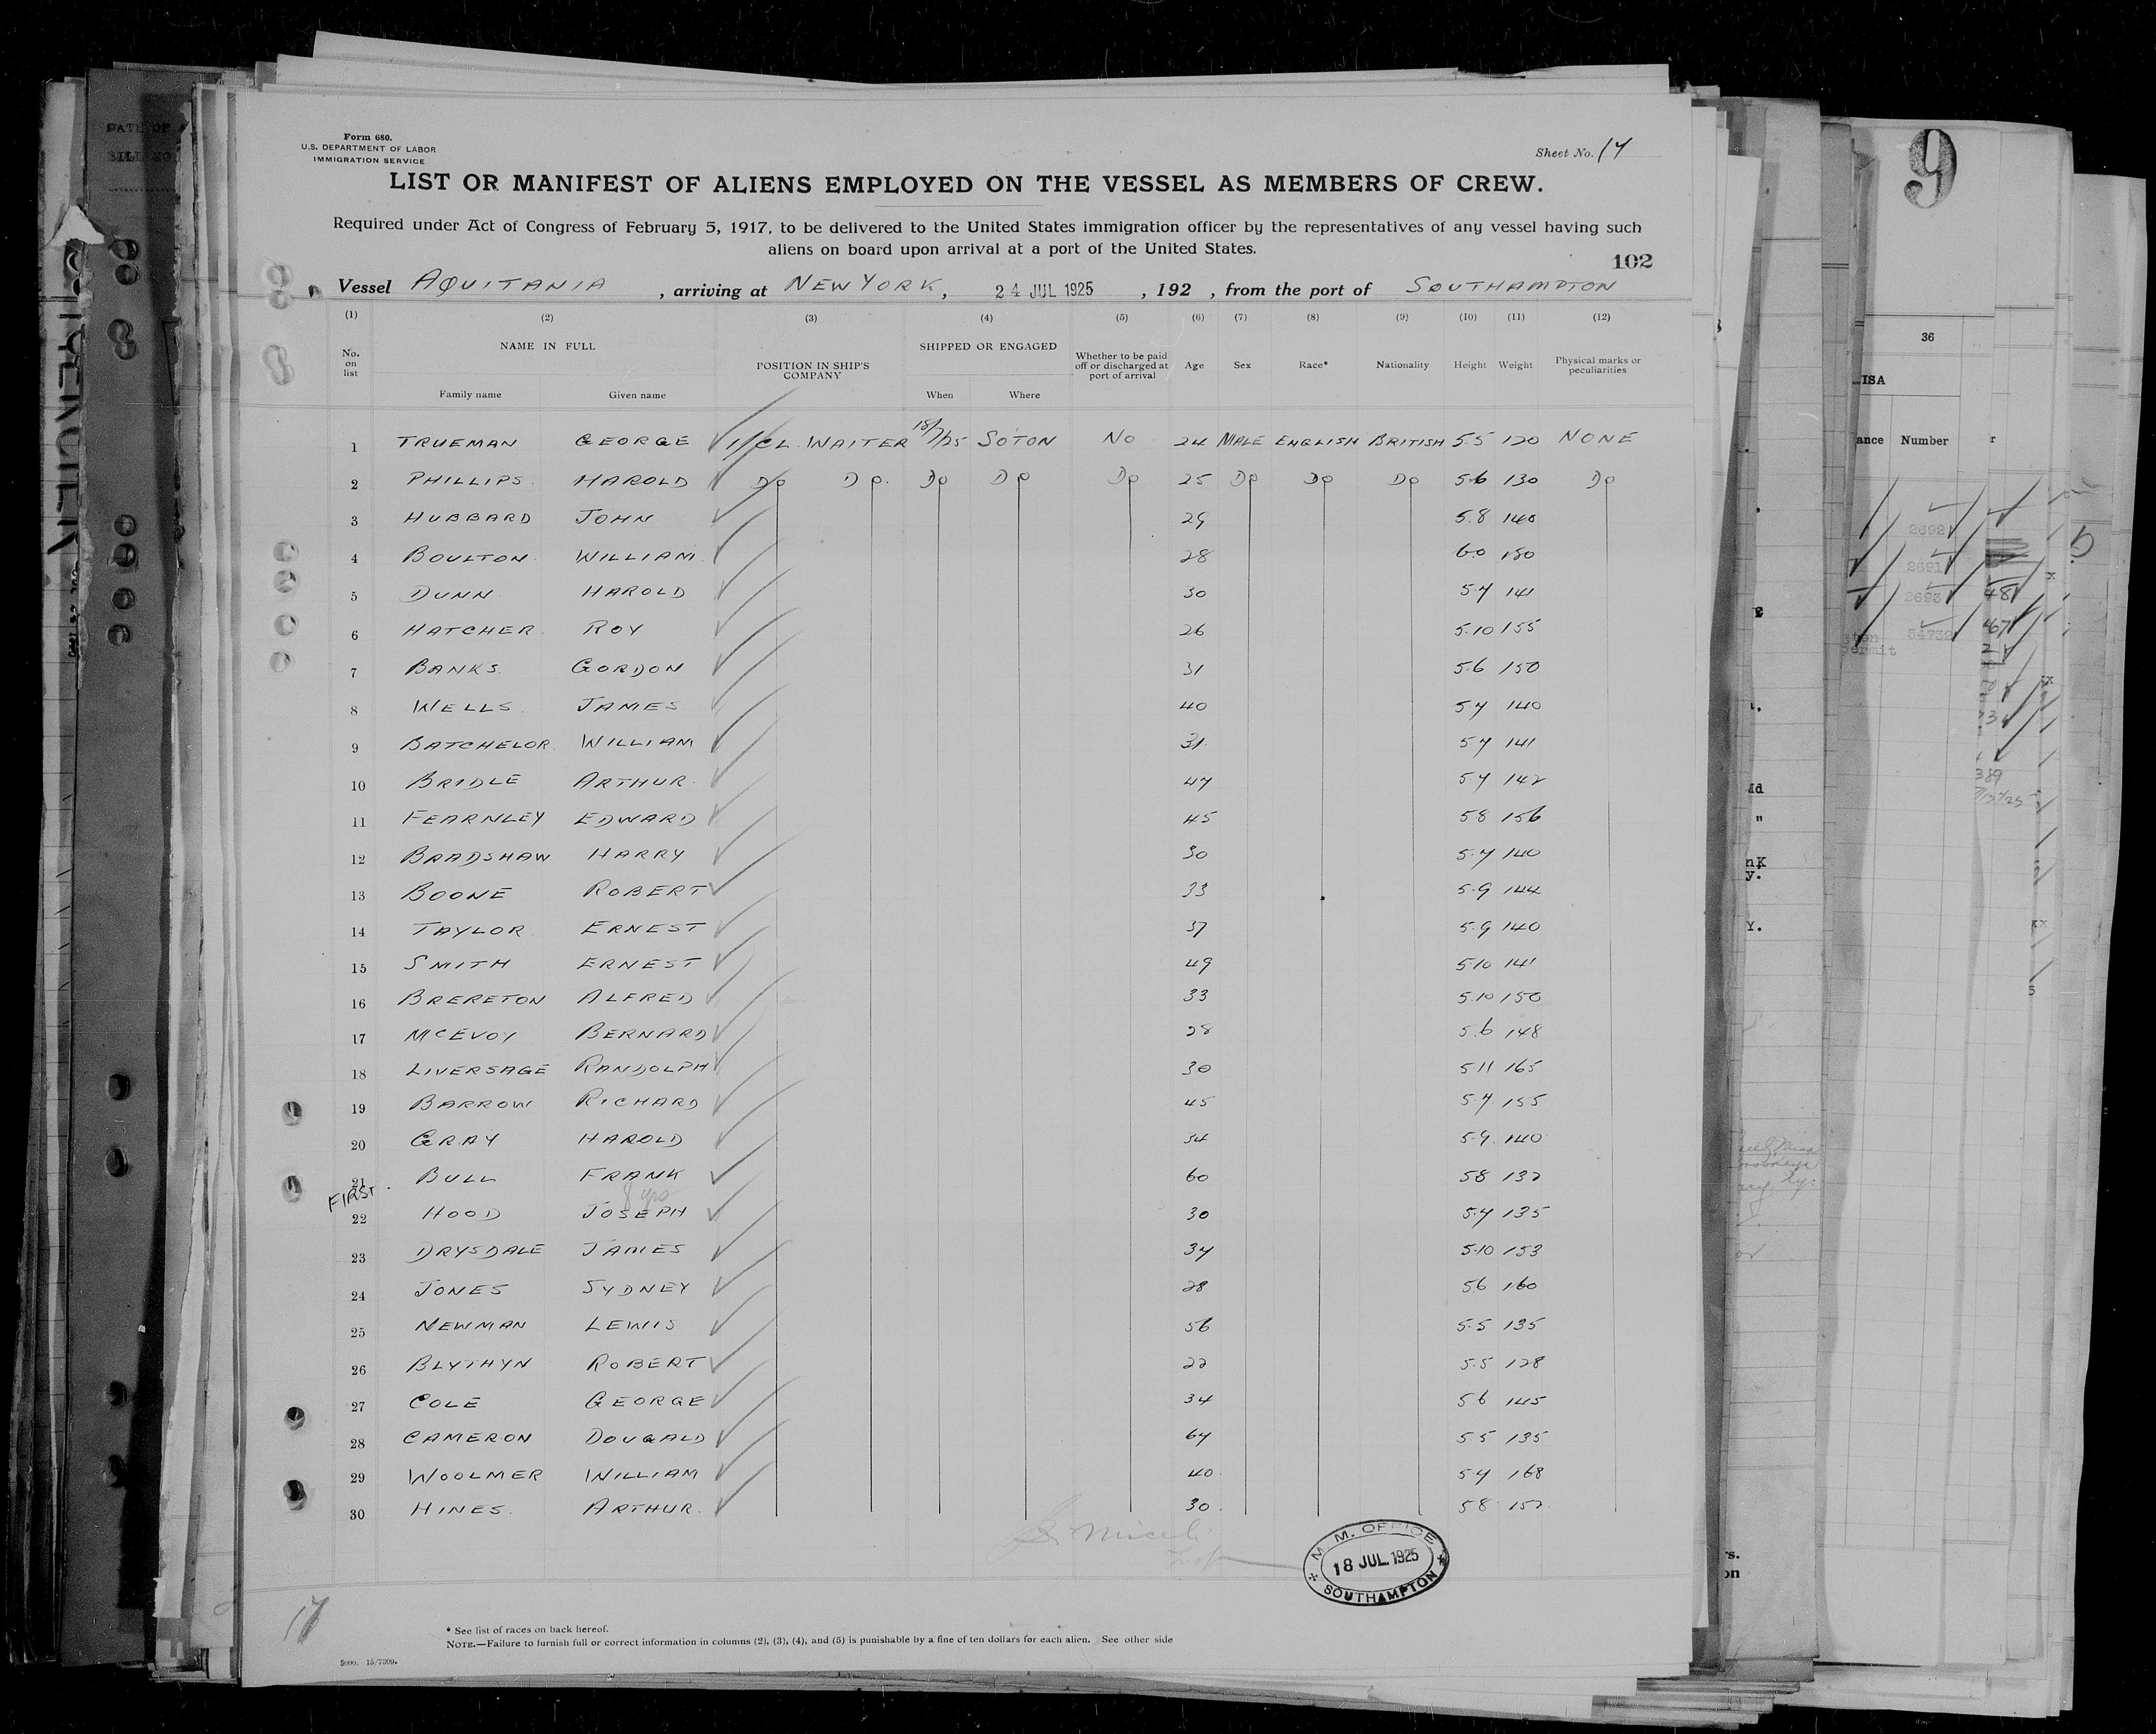 Form 680.
U.S. DEPARTMENT OF LABOR
IMMIGRATION SERVICE
Sheet No. 17
LIST OR MANIFEST OF ALIENS EMPLOYED ON THE VESSEL AS MEMBERS OF CREW.
Required under Act of Congress of February 5, 1917, to be delivered to the United States immigration officer by the representatives of any vessel having such
aliens on board upon arrival at a port of the United States.
102
Vessel AQUITANIA, arriving at NEW YORK, 24 JUL 1925, 192 , from the port of SOUTHAMPTON
(1) (2) (3) (4) (5) (6) (7) (8) (9) (10) (11) (12)
No. on list NAME IN FULL Family name Given name POSITION IN SHIP'S COMPANY SHIPPED OR ENGAGED When Where Whether to be paid off or discharged at port of arrival Age Sex Race* Nationality Height Weight Physical marks or peculiarities
1 TRUEMAN GEORGE 1/CL. WAITER 18/7/25 SOTON NO 24 MALE ENGLISH BRITISH 5.5 120 NONE
2 PHILLIPS. HAROLD DO DO. DO DO DO 25 DO DO DO 5.6 130 DO
3 HUBBARD JOHN 29 5.8 140
4 BOULTON WILLIAM. 28 6.0 180
5 DUNN HAROLD 30 5.7 141
6 HATCHER ROY 26 5.10 155
7 BANKS. GORDON 31 5.6 150
8 WELLS JAMES 40 5.7 140
9 BATCHELOR. WILLIAM 31. 5.7 141
10 BRIDLE ARTHUR. 47 5.7 142
11 FEARNLEY EDWARD 45 5.8 156
12 BRADSHAW HARRY 30 5.7 140
13 BOONE ROBERT 33 5.9 144
14 TAYLOR ERNEST 37 5.9 140
15 SMITH ERNEST 49 5.10 141
16 BRERETON ALFRED 33 5.10 150
17 McEVOY BERNARD 28 5.6 148
18 LIVERSAGE RANDOLPH 30 5.11 165
19 BARROW RICHARD 45 5.7. 155
20 GRAY HAROLD 34 5.9. 140
21 BULL FRANK 60 5.8 132
FIRST. 8 yrs
22 HOOD JOSEPH 30 5.7 135
23 DRYSDALE JAMES 37 5.10 153
24 JONES SYDNEY 28 5.6 160
25 NEWMAN LEWIS 56 5.5 135
26 BLYTHYN ROBERT 22 5.5 128
27 COLE GEORGE 34 5.6 145
28 CAMERON DOUGALD 67 5.5 135
29 WOOLMER WILLIAM 40. 5.7 168
30 HINES. ARTHUR. 30. 5.8 152
M. M. OFFICE
18 JUL. 1925
SOUTHAMPTON
17
* See list of races on back hereof.
NOTE.—Failure to furnish full or correct information in columns (2), (3), (4), and (5) is punishable by a fine of ten dollars for each alien. See other side
5000. 15/7309.
9
36
ISA
ance Number
2692
2691
2693
54732
48
67
389